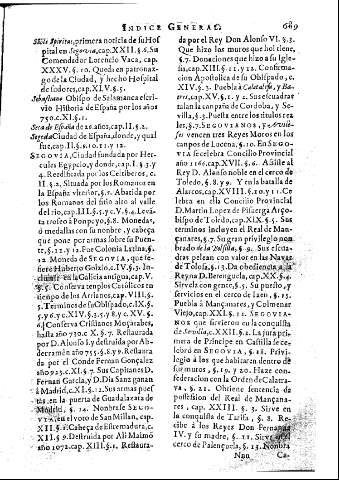 INDICE GENERAL. 689
Sãcti Spiritus, primera noticia de su Hos
pital en Segovia, cap. XXII. §. 6. Su
Comendador Lorenzo Vaca, cap.
XXXV. §. 10. Queda en patronaz-
go de la Ciudad, y hecho Hospital
de sudores, cap. XLV. §. 5.
Sebastiano Obispo de Salamanca escri-
vio Historia de España por los años
750. c. XI. §. 1.
Seca de España de 26. años, cap. II. §. 2.
Segeda Ciudad de España, donde, y qual
fue, cap. II. §. 6. 10. 11. y 12.
SEGOVIA, Ciudad fundada por Her-
cules Egypcio, y donde, cap. I. §. 3. y
4. Reedificada por los Celtiberos, c.
II. §. 2. Situada por los Romanos en
la España vlterior, §. 7. Abatida por
los Romanos del sitio alto al valle
del rio, cap. III. §. 5. y c. V. §. 4. Levã-
ta trofeo à Pompeyo, §. 8. Monedas,
ò medallas con su nonbre, y cabeça
que pone por armas sobre la Puen-
te, §. 12. y 13. Fue Colonia Latina, §.
12. Moneda de SEGOVIA, que re-
fiere Huberto Golzio, c. IV. §. 3. In-
cluida en la Galicia antigua, cap. V.
§. 5. Conserva templos Catolicos en
tiempo de los Arrianos, c. VIII. §.
5. Terminos de su Obispado, c. IX. §.
5. y 6. y c. XIV. §. 3. 5. y 8. y c. XV. §.
6. Conserva Cristianos Moçarabes,
hasta año 730. c. X. §. 7. Restaurada
por D. Alonso I. y destruida por Ab-
derramen año 755. §. 8. y 9. Restaura
da por el Conde Fernan Gonçalez
año 923. c. XI. §. 7. Sus Capitanes D.
Fernan Garcia, y D. Dia Sanz ganan
à Madrid, c. XI. §. 12. Sus armas pues
tas en la puerta de Guadalaxara de
Madrid, §. 14. Nonbrase SEGO-
VIA, en el voto de San Millan, cap.
XII. §. 1. Cabeça de Estremadura, c.
XII. §. 9. Destruida por Ali Maimò
año 1072. cap. XIII. §. 1. Restaura-
da por el Rey Don Alonso VI. §. 3.
Que hizo los muros que hoi tiene,
§. 7. Donaciones que hizo a su Igle-
sia, cap. XIII. §. 11. y 12. Confirma-
cion Apostolica de su Obispado, c.
XIV. §. 3. Puebla à Calatalifa, y Ba-
tres, cap. XV. §. 1. y 2. Sus escuadras
talan la campaña de Cordoba, y Se-
villa, §. 3. Puebla entre los titulos rea
les, §. 7. SEGOVIANOS,
vencen tres Reyes Moros en los
canpos de Lucena, §. 10. En SEGO-
VIA se celebra Concilio Provincial
año 1166. cap. XVII. §. 6. Asiste al
Rey D. Alonso noble en el cerco de
Toledo, §. 8. y 9. Y en la batalla de
Alarcos, cap. XVIII. §. 10. y 11. Ce
lebra en ella Concilio Provincial
D. Martin Lopez de Pisuerga Arço-
bispo de Toledo, cap. XIX. §. 5. Sus
terminos incluyen el Real de Man-
çanares, §. 7. Su gran privilegio non
brado de la Bolsilla, §. 9. Sus escua-
dras pelean con valor en las Navas
de Tolosa, §. 13. Da obediencia a la
Reyna D. Berenguela, cap. XX. §. 4.
Sirvela con gente, §. 5. Su puesto, y
servicios en el cerco de Jaen, §. 15.
Puebla à Mançanares, y Colmenar
Viejo, cap. XXI. §. 12. SEGOVIA-
NOS que sirvieron en la conquista
de Sevilla, c. XXI. §. 1. La jura pri-
mera de Principe en Castilla se ce-
lebrò en SEGOVIA, §. 18. Privi-
legio à los que habitaren dentro de
sus muros, §. 19. y 20. Haze con-
federacion con la Orden de Calatra-
va, §. 21. Obtiene sentencia de
possession del Real de Mançana-
res, cap. XXIII. §. 3. Sirve en
la conquista de Tarifa, §. 8. Re-
cibe à los Reyes Don Fernando
IV. y su madre, §. 11. Sirve en el
cerco de Palençuela, §. 13. Nonbra
Nnn Ca-